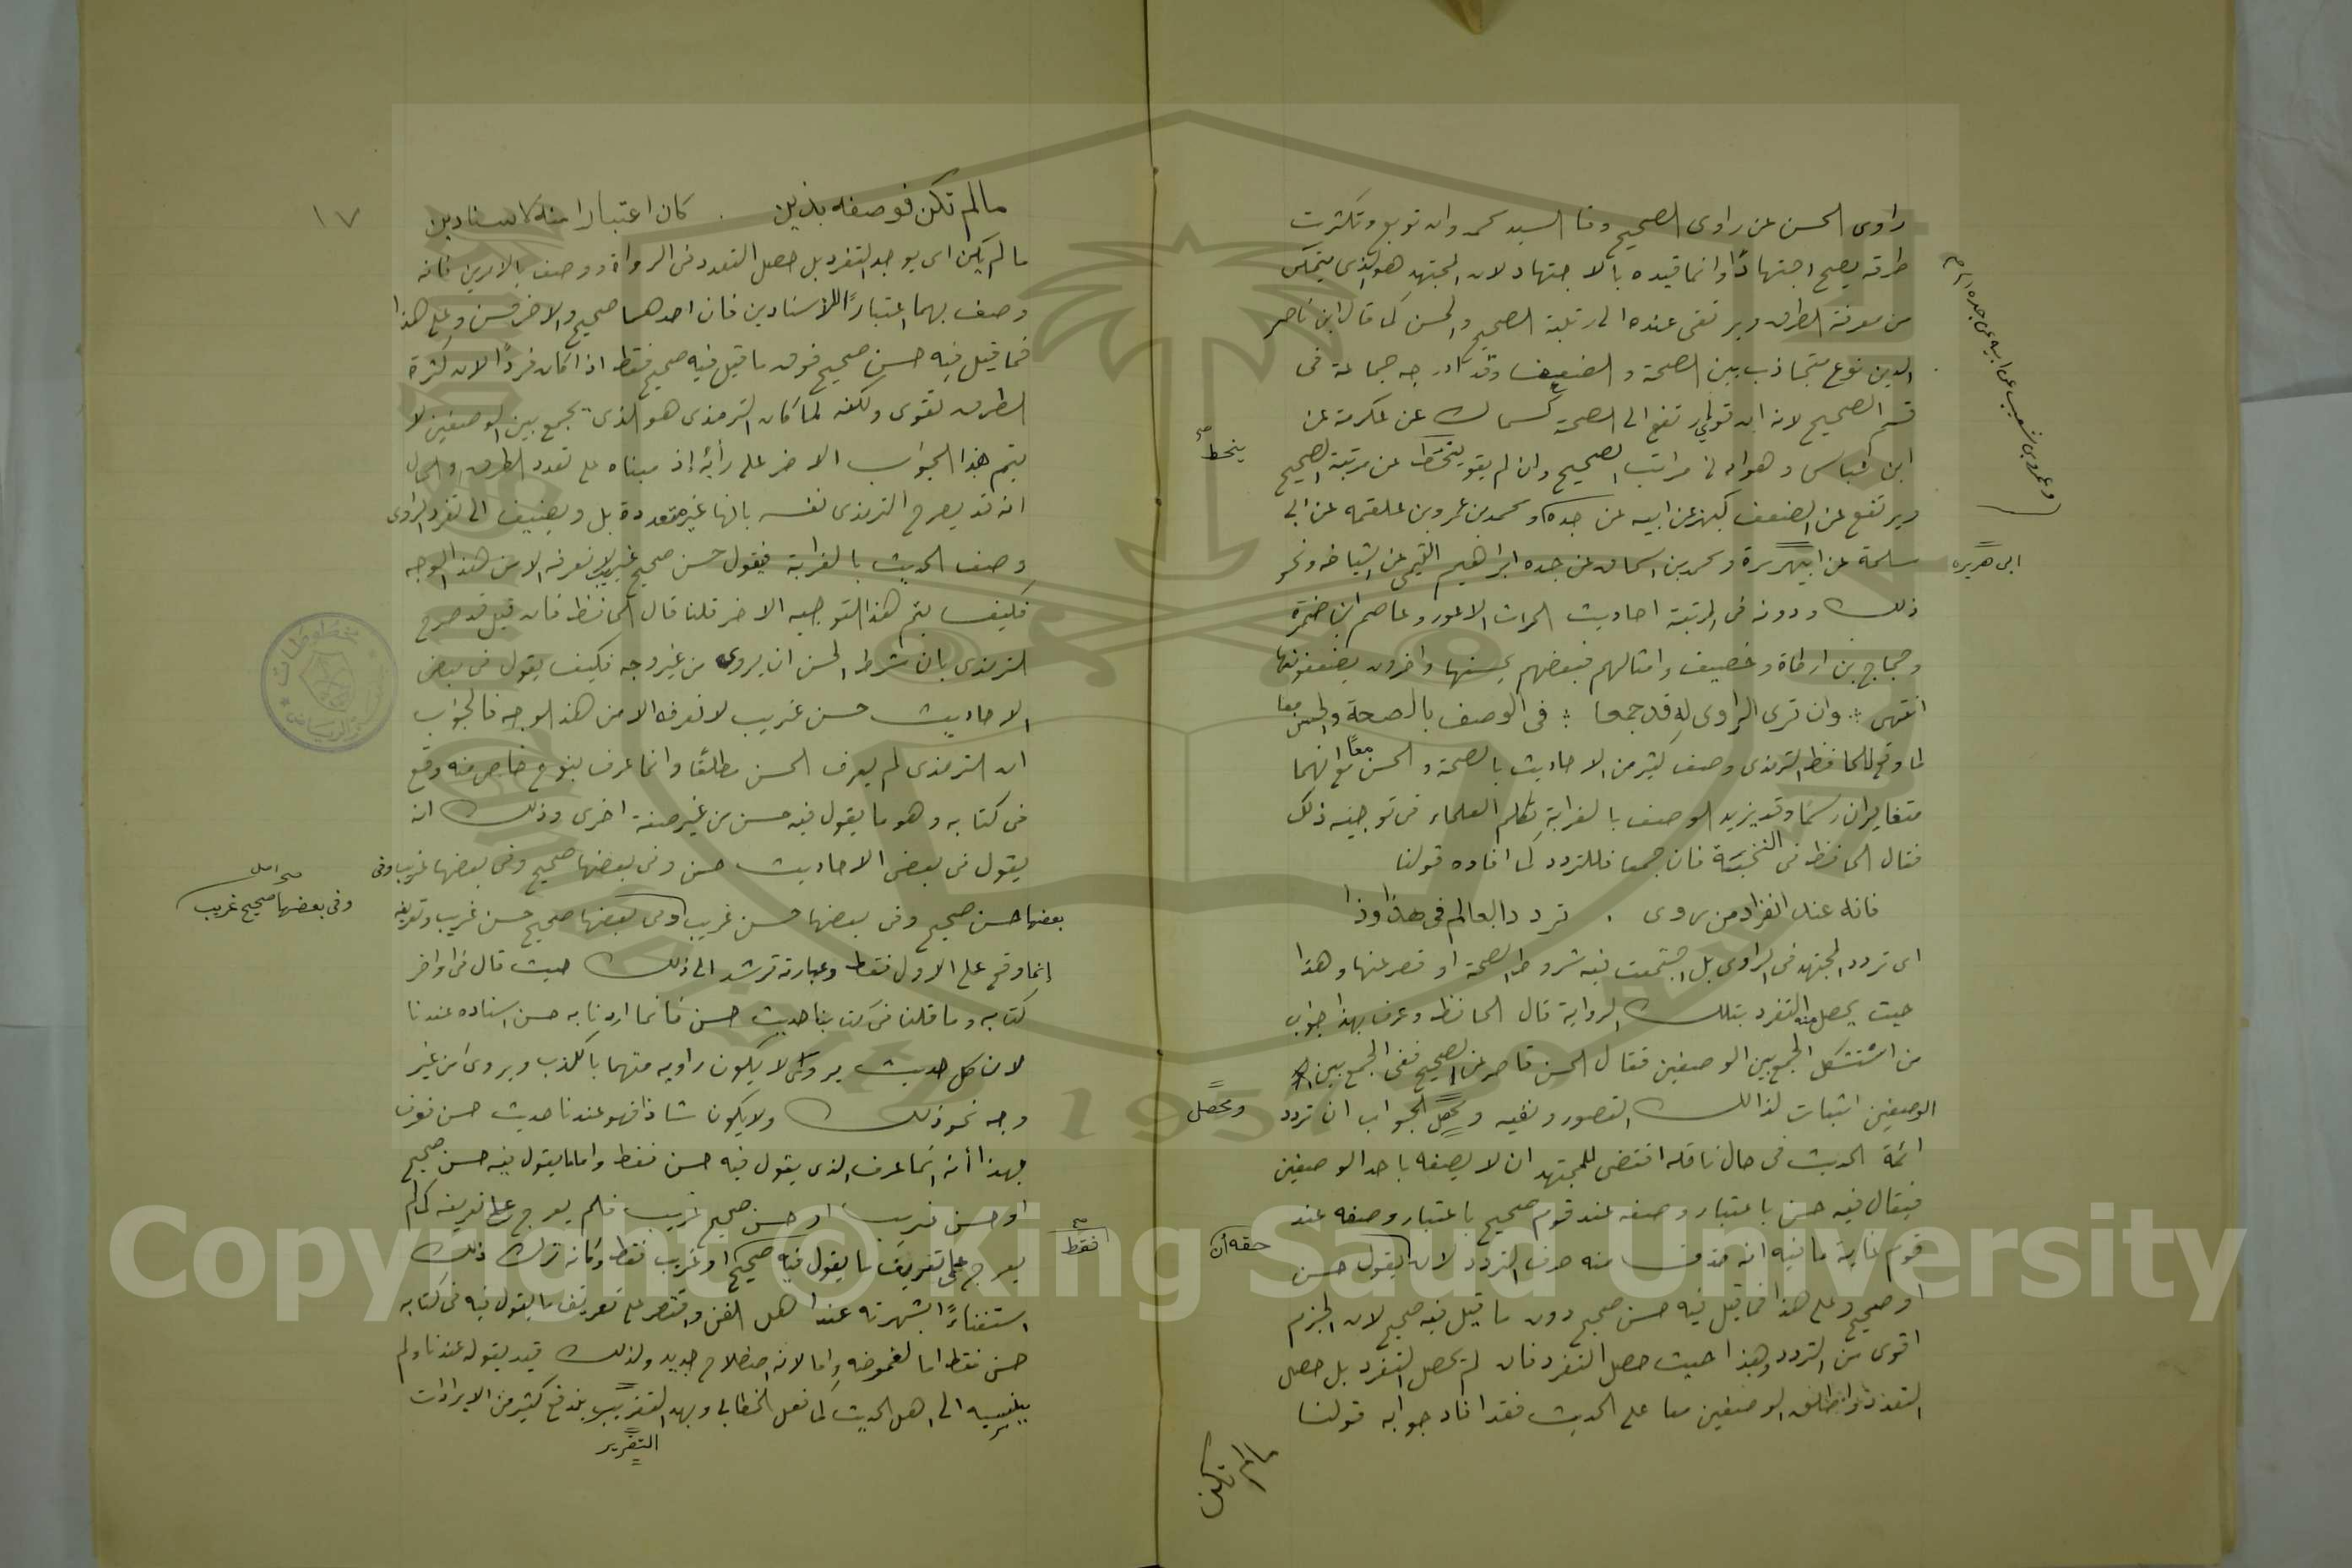 راوى الحسن عن راوى الصحيح وفا السيد محمد وان توبع وتكثرت
طرقه يصح اجتهادًا وانما قيده بالاجتهاد لان المجتهد هو الذى يتمكن
من معرفة الطرق ويرتقى عنده الى رتبة الصحيح والحسن كما قال ابن ناصر
الدين نوع متجاذب بين الصحة والضعف وقد ادرجه جماعة فى
قسم الصحيح لانه ان قوى ارتفع الى الصحة كسماك عن عكرمة عن
ابن عباس وهو ادنى مراتب الصحيح وان لم يقو ينحط عن مرتبة الصحيح
ينحط صح
ويرتفع عن الضعف كبهز عن ابيه عن جده ومحمد بن عمرو بن علقمه عن ابى
وعمرو بن شعيب عن ابيه عن جده
سلمة عن ابيهريرة ومحمد بن اسحاق عن جده ابراهيم التيمى عن اشياخه ونحو
ابى هريره
ذلك ودونه فى المرتبة احاديث الحراث الاعور وعاصم ابن ضمرة
وحجاج بن ارطاة وخصيف وامثالهم فبعضهم يحسنها واخرون يضعفونها
انتهى وان ترى الراوى له قد جمعا فى الوصف بالصحة والحسن معا
لما وقع للحافظ الترمذى وصف كثير من الاحاديث بالصحة والحسن معًا مع انهما
متغايران رسمًا وقد يزيد الوصف بالغرابة تكلم العلماء فى توجيه ذلك
فقال الحافظ فى النخبة فان جمعا فللتردد كما افاده قولنا
فانه عند انفراد من روى . تردد العالم فى هذا وذا
اى تردد المجتهد فى الراوى بل اجتمعت فيه شروط الصحة او قصر عنها وهذا
حيث يحصل منه التفرد بتلك الرواية قال الحافظ وعرف بهذا جواب
من استشكل الجمع بين الوصفين فقال الحسن قاصر عن الصحيح ففى الجمع بين
الوصفين اثبات لذالك القصور ونفيه ومحصل الجواب ان تردد
ومحصل
ائمة الحديث فى حال ناقله اقتضى للمجتهد ان لا يصفه باحد الوصفين
فيقال فيه حسن باعتبار وصفه عند قوم صحيح باعتبار وصفه عند
قوم غاية ما فيه انه حذف منه حرف التردد لان يقول حسن
حقه ان
او صحيح وعلى هذا فما قيل فيه حسن صحيح دون ما قيل فيه صحيح لان الجزم
اقوى من التردد وهذا حيث حصل التفرد فان لم يحصل التفرد بل حصل
التعدد واطلق الوصفين معا على الحديث فقد افاد جوابه قولنا
مالم تكن
١٧
مالم تكن فوصفه بذين . كان اعتبارا منه لاسنادين
ما لم يكن اى يوجد التفرد بل حصل التعدد فى الرواة ووصف بالامرين فانه
وصف بهما اعتبارًا للاسنادين فان احدهما صحيح والاخر حسن وعلى هذا
فما قيل فيه حسن صحيح فوق ما قيل فيه صحيح فقط اذا كان فردًا لان كثرة
الطرق تقوى ولكنه لما كان الترمذى هو الذى يجمع بين الوصفين لا
يتم هذا الجواب الاخر على رأيه إذ مبناه على تعدد الطرق والحال
انه قد يصرح الترمذى نفسه بانها غير متعددة بل ويضيف الى تفرد الراوى
وصف الحديث بالغرابة فيقول حسن صحيح غريب لا نعرفه الا من هذا الوجه
فكيف يتم هذا التوجيه الاخر قلنا قال الحافظ فان قيل قد صرح
الترمذى بان شرط الحسن ان يروى من غير وجه فكيف يقول فى بعض
الاحاديث حسن غريب لا نعرفه الا من هذا الوجه فالجواب
ان الترمذى لم يعرف الحسن مطلقًا وانما عرف بنوع خاص منه وقع
فى كتابه وهو ما يقول فيه حسن من غير صفة اخرى وذلك انه
يقول فى بعض الاحاديث حسن وفى بعضها صحيح وفى بعضها غريب وفى
بعضها حسن صحيح وفى بعضها حسن غريب وفى بعضها صحيح حسن غريب وتعريفه
وفى بعضها صحيح غريب صح اصل
إنما وقع على الاول فقط وعبارته ترشد الى ذلك حيث قال فى اواخر
كتابه وما قلنا فى كتابنا حديث حسن فانما اردنا به حسن اسناده عندنا
لان كل حديث يروى لا يكون راويه متهما بالكذب ويروى من غير
وجه نحو ذلك ولا يكون شاذا فهو عندنا حديث حسن فعرف
بهذا أنه انما عرف الذى يقول فيه حسن فقط واما ما يقول فيه حسن صحيح
او حسن غريب او حسن صحيح غريب فلم يعرج على تعريفه كما لم
يعرج على تعريف ما يقول فيه صحيح او غريب فقط وكانه ترك ذلك
فقط صح
استغناءً بشهرته عند اهل الفن واقتصر على تعريف ما يقول فيه فى كتابه
حسن فقط اما لغموضه واما لانه اصطلاح جديد ولذلك قيد بقوله عندنا ولم
ينسبه الى اهل الحديث كما فعل الخطابى وبهذا التقريب يندفع كثير من الايرادات
التقرير
Copyright © King Saud University
1957